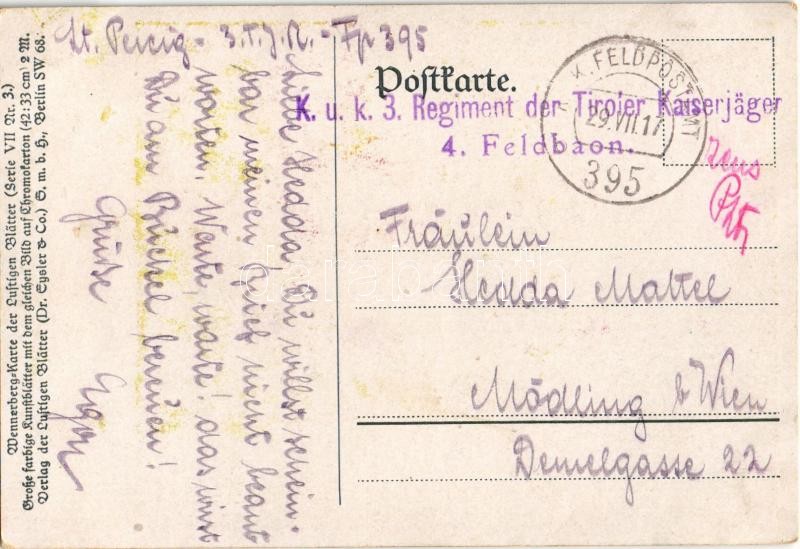 Wennerberg-Karte der Lustigen Blätter (Serie VII Nr. 3.)
Große farbige Kunstblätter mit dem gleichen Bild auf Chromokarton (42:33 cm) 2 M.
Verlag der Lustigen Blätter (Dr. Eysler & Co.) G. m. b. H., Berlin SW 68.
3. T. J. R. - Fp 395
Liebe Hedda! Du willst schein-
bar meinen Brief nicht beant
worten. Warte, warte! das wirst
Du am Buckel bereuen!
Grüße
Egon
Postkarte.
K. u. k. 3. Regiment der Tiroler Kaiserjäger
4. Feldbaon.
K. FELDPOSTAMT
29.VII.17
395
Fräulein
Hedda Mattel
Mödling b/Wien
Demelgasse 22
darabanth